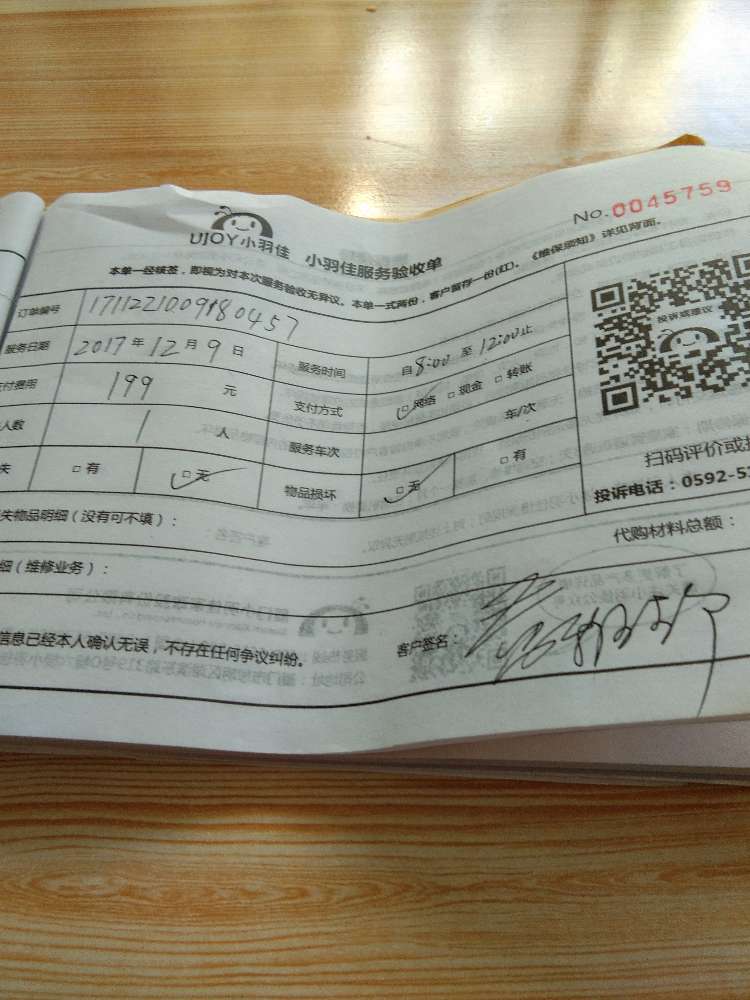 No.0045759
UJOY小羽佳 小羽佳服务验收单
本单一经核签，即视为对本次服务验收无异议。本单一式两份，客户留存一份(红)。《维保须知》详见背面。
订单编号 1711221009180457
服务日期 2017年12月9日 服务时间 自8:00至12:00止
付费用 199 元 支付方式 网络 □现金 □转账
人数 1 人 服务车次 车/次
失 □有 □无 物品损坏 □无 □有
投诉或建议
扫码评价或
投诉电话：0592-5
失物品明细（没有可不填）：
代购材料总额：
细（维修业务）：
信息已经本人确认无误，不存在任何争议纠纷。 客户签名：